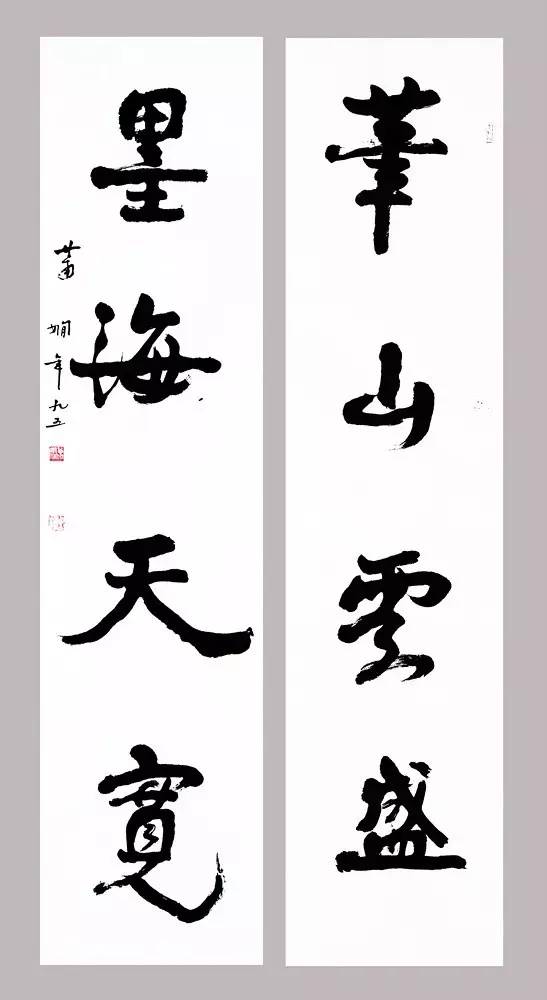 筆山雲盛
墨海天寬
蕭嫻年九五